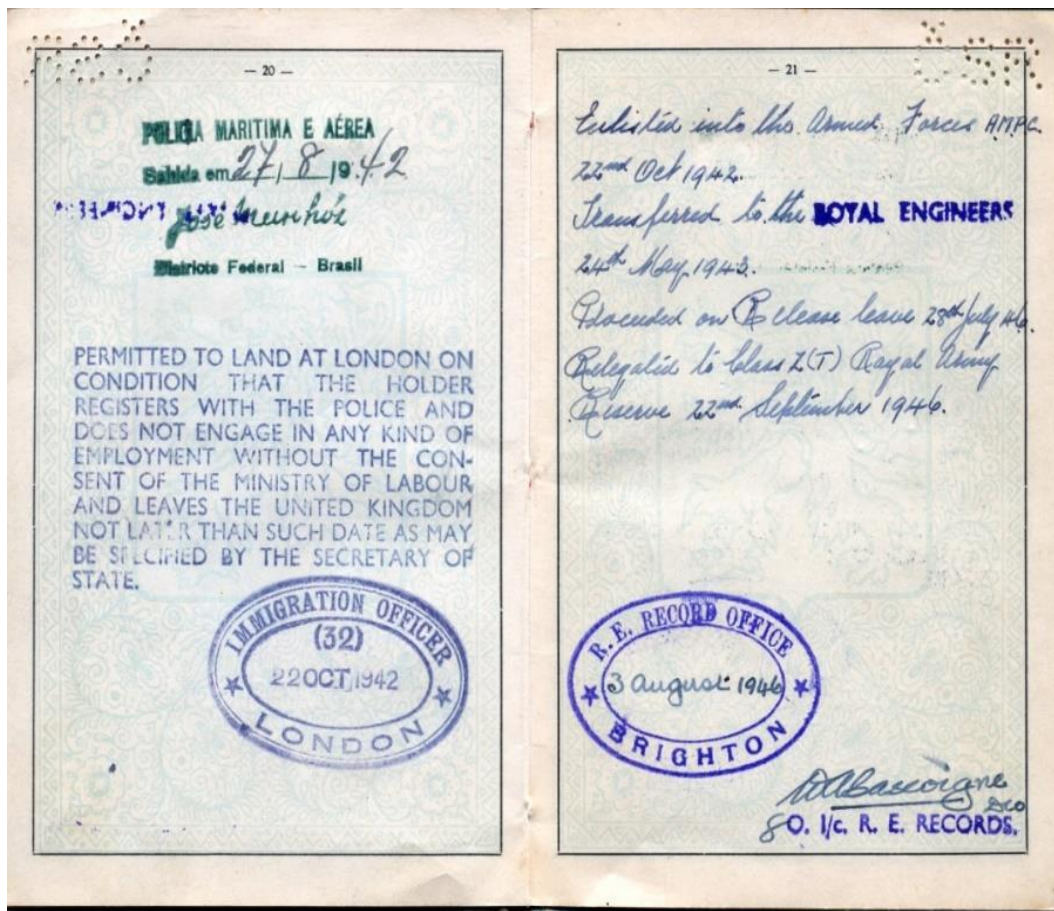 — 20 —
POLICIA MARITIMA E AÉREA
Sahida em 27/8/1942
José
Districto Federal – Brasil
PERMITTED TO LAND AT LONDON ON
CONDITION THAT THE HOLDER
REGISTERS WITH THE POLICE AND
DOES NOT ENGAGE IN ANY KIND OF
EMPLOYMENT WITHOUT THE CON-
SENT OF THE MINISTRY OF LABOUR
AND LEAVES THE UNITED KINGDOM
NOT LATER THAN SUCH DATE AS MAY
BE SPECIFIED BY THE SECRETARY OF
STATE.
IMMIGRATION OFFICER
(32)
22 OCT 1942
★ LONDON ★
— 21 —
Enlisted into the Armed Forces AMPC
22nd Oct 1942.
Transferred to the ROYAL ENGINEERS
24th May 1943.
on Release leave 28th July 46.
Relegated to Class Z(T) Royal Army
Reserve 22nd September 1946.
R. E. RECORD OFFICE
3 August 1946
★ BRIGHTON ★
O. I/c. R. E. RECORDS.